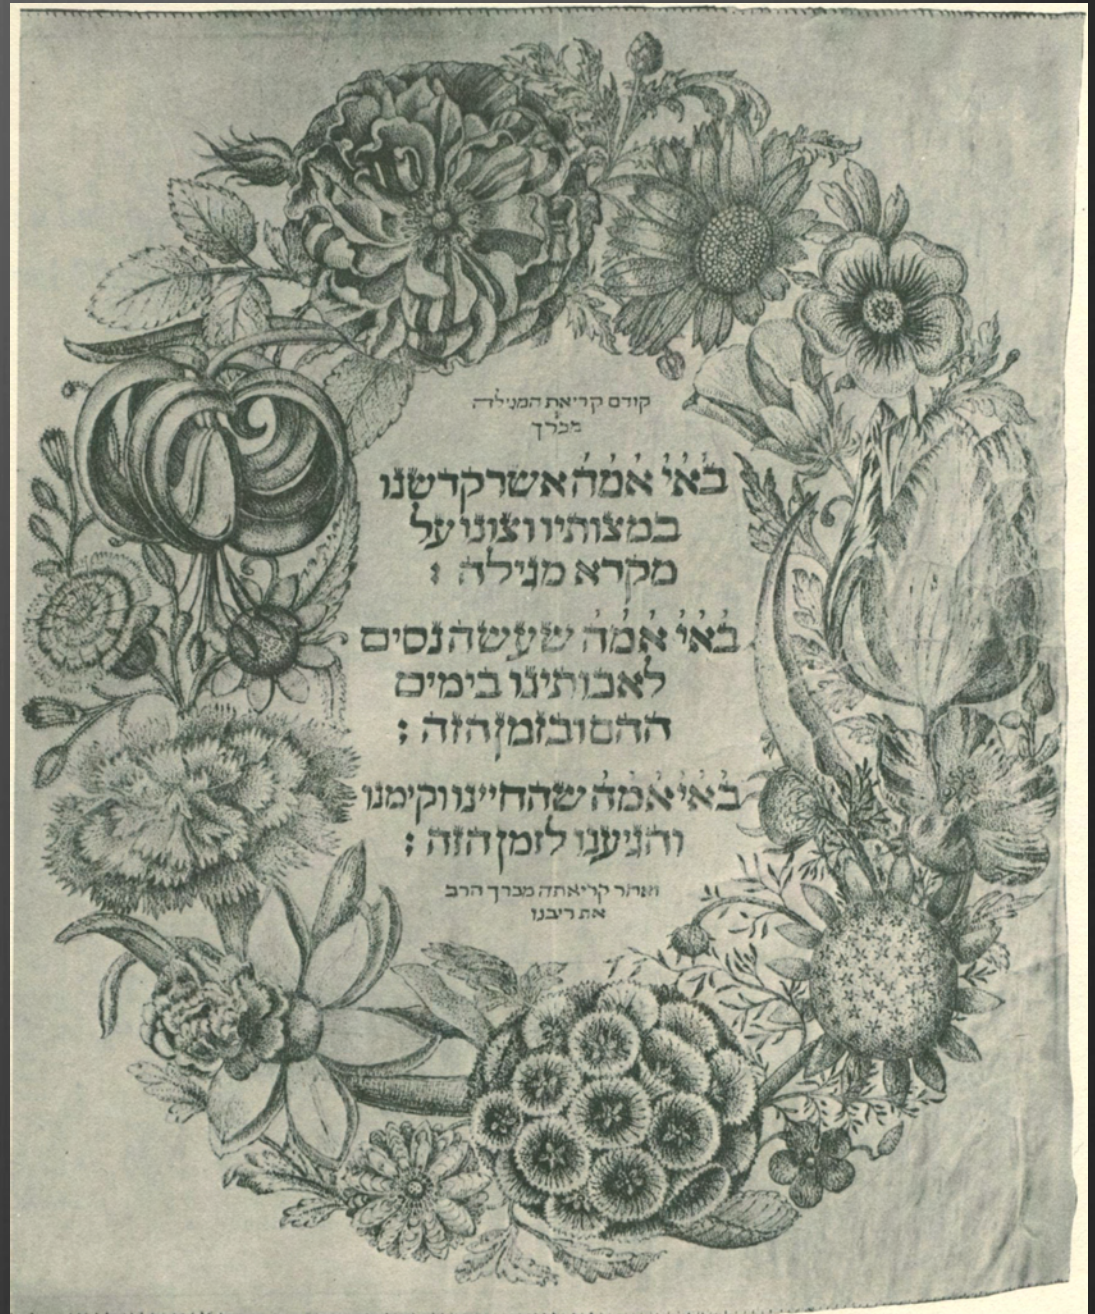 קודם קריאת המגילה
מברך
בא״י אמ״ה אשר קדשנו
במצותיו וצונו על
מקרא מגילה :
בא״י אמ״ה שעשה נסים
לאבותינו בימים
ההם ובזמן הזה :
בא״י אמ״ה שהחיינו וקימנו
והגיענו לזמן הזה :
ואחר קריאתה מברך הרב
את ריבנו